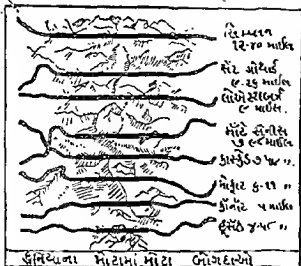 સિમ્પલન
૧૨.૪૦ માઈલ
સેંટ ગોથાર્ડ
૯.૨૬ માઈલ
લોએસ્ટબર્ગ
૯ માઈલ.
માઁટ સેનીસ
માઈલ
કાસ્કેડ ૭.૫૪ "
મોફાટ ૬.૧૧ "
કોનોટ ૫ માઈલ
હુસેક ૪.૫૮ "
દુનિયાના મોટામાં મોટા બોગદાઓ